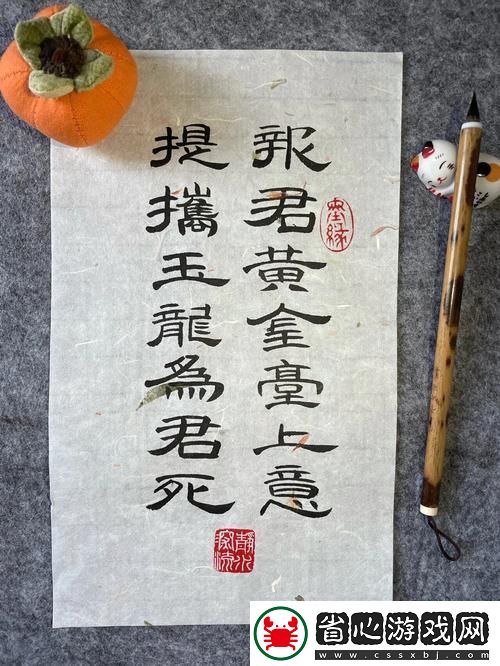 報君黄金臺上意
提攜玉龍為君死
墨緣
靜水流深
省心游戏网
www.cssxbj.com